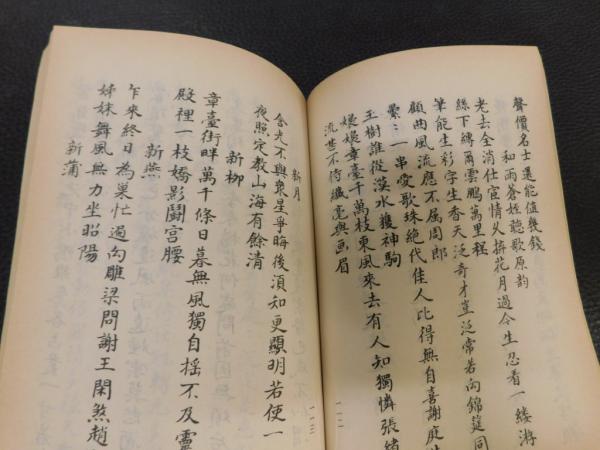 聲價名士還能值幾錢
和雨蒼姪聽歌原韵
老去全消仕宦情火拚花月過今生忍看一縷游
絲下轉爾雲鵬萬里程
筆能生彩字生香天泛奇才豈泛常若向錦筵同
顧曲風流應不屬周郎
纍纍一串愛歌珠絕代佳人比得無自喜謝庭
玉樹誰從渼水獲神駒
嬝嬝章臺千萬枝東風來去有人知獨憐張緒
流 不待纖毫與画眉
一一二
新月
含光不與衆星爭晦後須知更顯明若使一
夜照定教山海有餘清
新柳
章臺街畔萬千條日暮無風獨自摇不及靈
殿裡一枝嬌影鬪宫腰
新燕
乍來終日為巢忙過向雕梁問謝王閑煞趙
姊妹舞風無力坐昭陽
新蒲
一一三